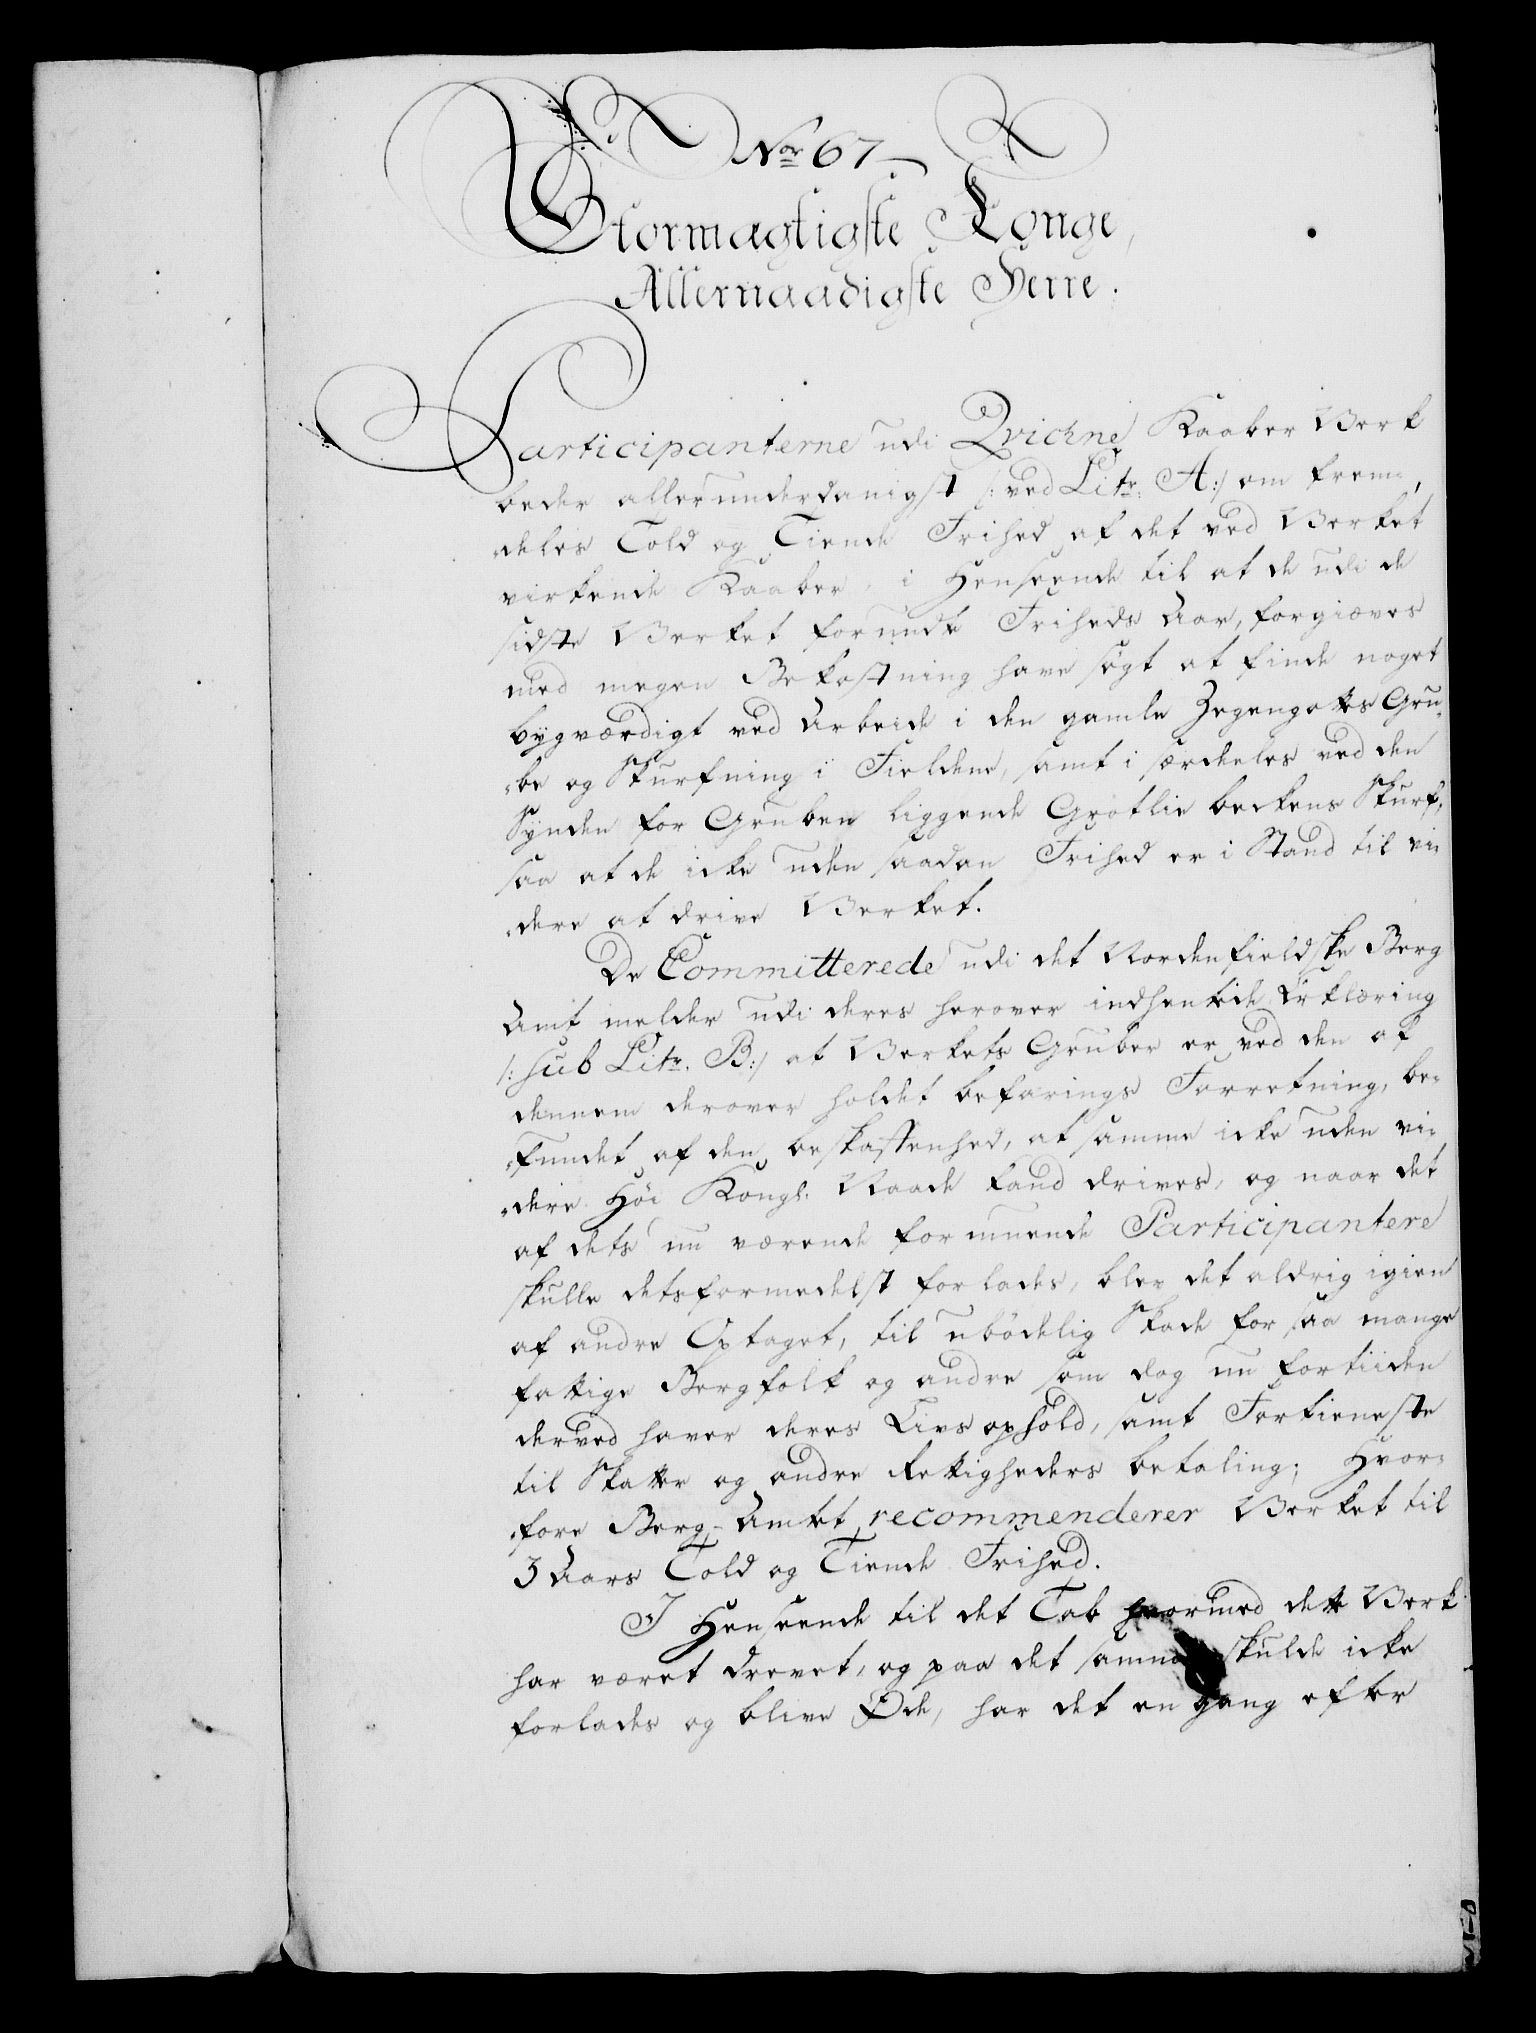 No̲r̲ 67
Stormægtigste Konge,
Allernaadigste Herre.
Participanterne udi Qvickne Kaaber Verk
beder allerunderdanigst /: ved Litr. A:/ om frem-
deles Told og Tiende Frihed af det ved Verket
virkende Kaaber, i Henseende til at de udi de
sidste Verket forundte Friheds Aar, forgiæves
med megen Bekostning have søgt at finde noget
bygværdigt ved Arbeide i den gamle Gegengotts Gru-
be og Skurfning i Fieldene, samt i særdeles ved den
Synden for Gruben liggende Grøtlie beckens Skurf,
saa at de icke uden saadan Frihed er i Stand til vi-
dere at drive Verket.
De Committerede udi det Nordenfieldske Berg
Amt melder udi deres herover indhentede Erklæring
/: sub Litr. B:/ at Verkets Gruber er ved den af
dennem derover holdet befarings Forretning, be-
fundet af den beskaffenhed, at samme icke uden vi-
dere Høi Kongl. Naade kand drives, og naar det
af dets nu værende formuende Participantere
skulle detsformedelst forlades, blev det aldrig igien
af andre Optaget, til ubødelig Skade for saa mange
fattige Bergfolk og andre som dog nu fortiiden
derved haver deres Livs ophold, samt Fortieneste
til Skatte og andre Rettigheders betaling; Hvor-
fore Berg-Amtet recommenderer Verket til
3 Aars Told og Tiende Frihed.
I Henseende til det Tab hvormed dette Verk
har været drevet, og paa det samme skulde icke
forlades og blive Øde, har det en gang efter